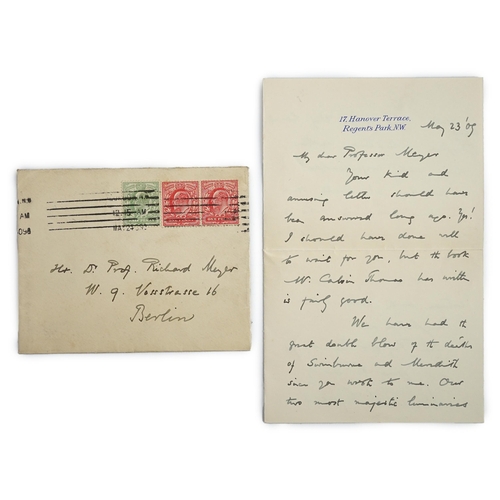 12.15 AM
MAY 24
Hr. Dr. Prof. Richard Meyer
W. 9. Vossstrasse 16
Berlin
17, Hanover Terrace,
Regents Park, N.W.
May 23 '09
My dear Professor Meyer
Your kind and
amusing letter should have
been answered long ago. Yes!
I should have done well
to wait for you, but the book
Mr. Calvin Thomas has written
is fairly good.
We have had the
great double blow of the deaths
of Swinburne and Meredith
since you wrote to me. Our
two most majestic luminaries